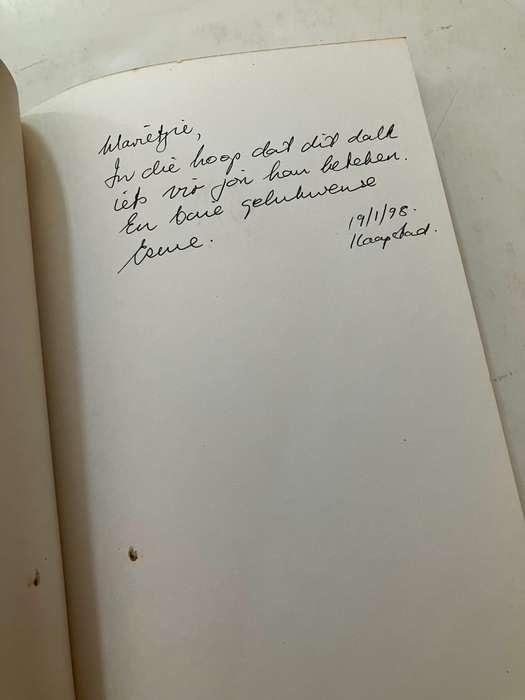 Mariëtjie,
In die hoop dat dit dalk
iets vir jou kan beteken.
En baie gelukwense
Esmé.
19/1/98.
Kaapstad.